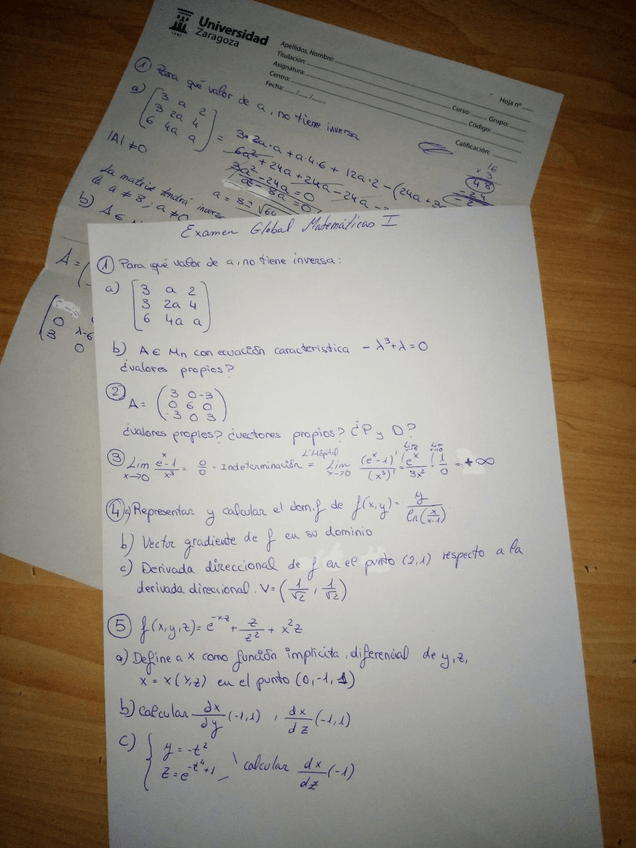 Universidad
Zaragoza
1542
Apellidos, Nombre:
Titulación:
Asignatura:
Centro:
Fecha: __/__/__
Hoja nº
Curso: Grupo:
Código:
Calificación:
① Para qué valor de a, no tiene inversa
a) [3 a 2
3 2a 4
6 4a a] = 3·2a·a + a·4·6 + 12a·2 - (24a +
6a² + 24a + 24a - 24a
|A| ≠ 0
3a² - 24a = 0
a² - 8a = 0
La matriz tendrá inversa
a = 8 ± √64
16
48
de a ≠ 8, a ≠ 0
b) A ∈
A = (
0 λ-6
3 0
Examen Global Matemáticas I
① Para qué valor de a, no tiene inversa:
a) [3 a 2
3 2a 4
6 4a a]
b) A ∈ Mn con ecuación caracteristica - λ³ + λ = 0
¿valores propios?
② A = (3 0 -3
0 6 0
-3 0 3)
¿valores propios? ¿vectores propios? ¿P y D?
③ Lim x→0 e^x-1/x³ = 0/0 - Indeterminación = L'Hôpital Lim x→0 (e^x-1)'/(x³)' = Lim x→0 e^x/3x² = Lim x→0 1/0 = +∞
④ a) Representar y calcular el dom.f de f(x,y) = y/ln(x/x-1)
b) Vector gradiente de f en su dominio
c) Derivada direccional de f en el punto (2,1) respecto a la
derivada direccional. V = (1/√2, 1/√2)
⑤ f(x,y,z) = e^-xz + z/z² + x²z
a) Define a x como función implicita, diferencial de y,z,
x = x(y,z) en el punto (0,-1,1)
b) Calcular dx/dy (-1,1), dx/dz (-1,1)
c) { y = -t²
z = e^-t⁴ + 1, calcular dx/dz (-1)